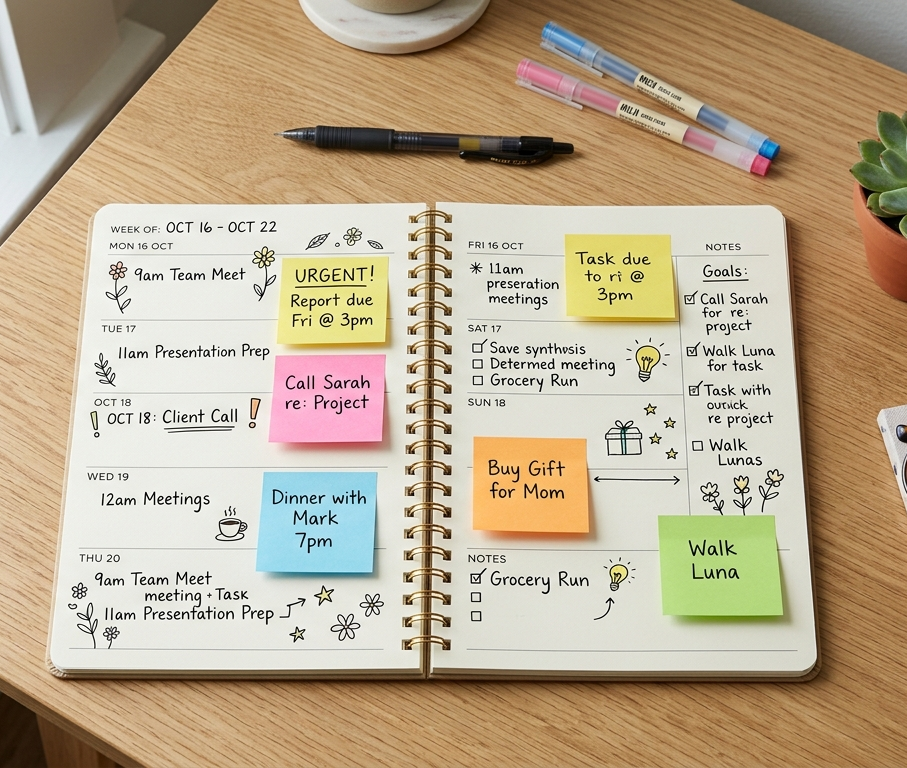 WEEK OF: OCT 16 - OCT 22
MON 16 OCT
9am Team Meet
URGENT!
Report due
Fri @ 3pm
TUE 17
11am Presentation Prep
Call Sarah
re: Project
OCT 18
OCT 18: Client Call
WED 19
12am Meetings
Dinner with
Mark
7pm
THU 20
9am Team Meet
meeting + Task
11am Presenfation Prep
FRI 16 OCT
11am
preseration
meetings
Task due
to ri @
3pm
SAT 17
Save synthısis
Determed meeting
Grocery Run
SUN 18
Buy Gift
for Mom
NOTES
Grocery Run
NOTES
Goals:
Call Sarah
for re:
project
Walk Luna
for task
Task with
re project
Walk
Lunas
Walk
Luna